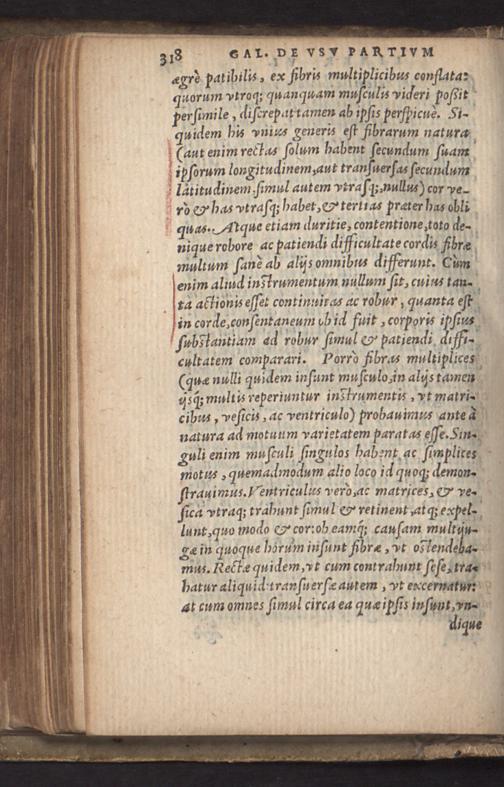 318 GAL. DE VSV PARTIVM
ægrè patibilis, ex fibris multiplicibus conflata:
quorum vtroq; quanquam musculis videri poßit
persimile, discrepat tamen ab ipsis perspicuè. Si-
quidem his vnius generis est fibrarum natura
(aut enim rectas solum habent secundum suam
ipsorum longitudinem, aut transuersas secundum
latitudinem. simul autem vtrasq;, nullus) cor ve-
rò & has vtrasq; habet, & tertias præter has obli
quas. Atque etiam duritie, contentione, toto de-
nique robore ac patiendi difficultate cordis fibræ
multum sanè ab alijs omnibus differunt. Cùm
enim aliud instrumentum nullum sit, cuius tan-
ta actionis esset continuitas ac robur, quanta est
in corde, consentaneum ob id fuit, corporis ipsius
substantiam ad robur simul & patiendi diffi-
cultatem comparari. Porrò fibras multiplices
(quæ nulli quidem insunt musculo, in alijs tamen
ijsq; multis reperiuntur instrumentis, vt matri-
cibus, vesicis, ac ventriculo) probauimus ante à
natura ad motuum varietatem paratas esse. Sin-
guli enim musculi singulos habent ac simplices
motus, quemadmodum alio loco id quoq; demon-
strauimus. Ventriculus verò, ac matrices, & ve-
sica vtraq; trahunt simul & retinent, atq; expel-
lunt, quo modo & cor: ob eamq; causam multiju-
gæ in quoque horum insunt fibræ, vt ostendeba-
mus. Rectæ quidem, vt cum contrahunt sese, tra-
hatur aliquid: transuersæ autem, vt excernatur:
at cum omnes simul circa ea quæ ipsis insunt, vn-
dique